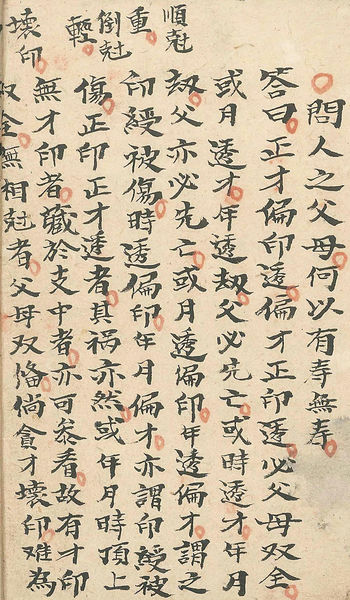 順尅
重
倒尅
輕
壞印
○問人之父母何以有寿無寿
答曰正才偏印透偏才正印透必父母双全
或月透才年透劫父必先亡或時透才年月
劫父亦必先亡或月透偏印年透偏才謂之
印綬被傷時透偏印年月偏才亦謂印綬被
傷正印正才透者其禍亦然或年月時頂上
無才印者藏於支中者亦可叅看故有才印
双全無相尅者父母双俻倘貪才壞印难為